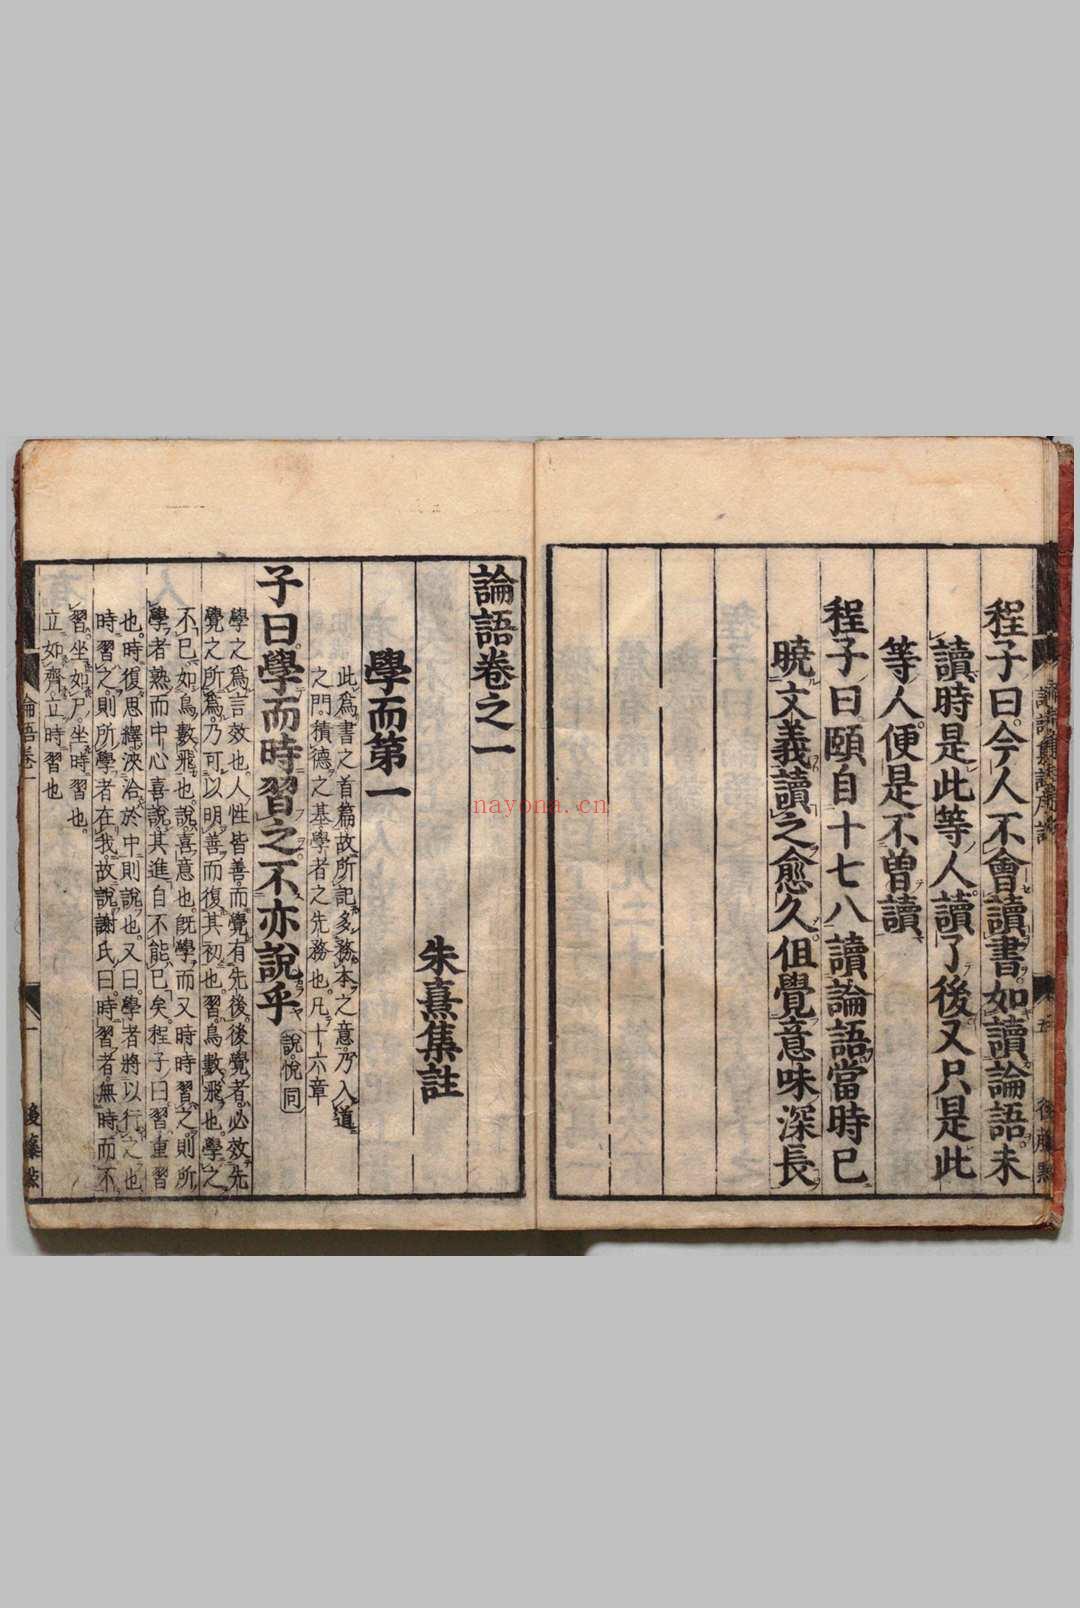 程子曰今人不會讀書如讀論語未
讀時是此等人讀了後又只是此
等人便是不曽讀
程子曰頤自十七八讀論語當時已
曉文義讀之愈久但覺意味深長
論語卷之一
朱熹集註
學而第一
此爲書之首篇故所記多務本之意乃入道
之門積德之基學者之先務也凡十六章
子曰學而時習之不亦說乎
說悅同
學之爲言效也人性皆善而覺有先後後覺者必效先
覺之所爲乃可以明善而復其初也習鳥數飛也學之
不已如鳥數飛也說喜意也旣學而又時時習之則所
學者熟而中心喜說其進自不能已矣程子曰習重習
也時復思繹浹洽於中則說也又曰學者將以行之也
時習之則所學者在我故說謝氏曰時習者無時而不
習坐如尸坐時習也
立如齊立時習也
論語卷一
一
後藤點
nayona.cn